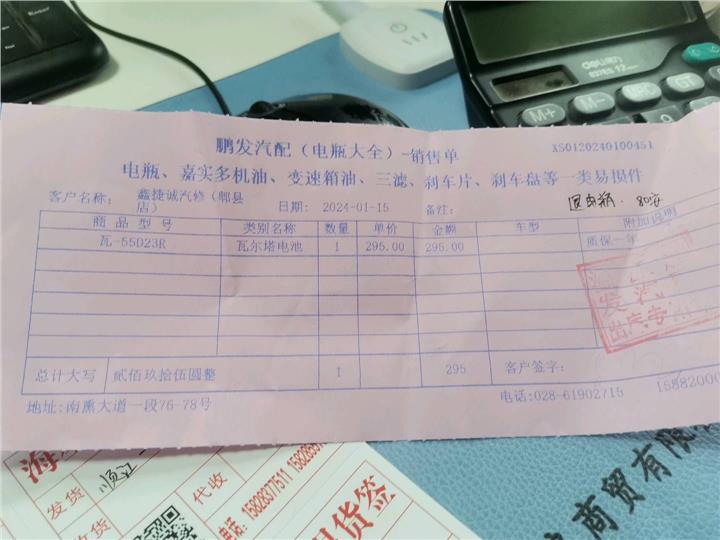 deli得力
M+
M-
GT
鹏发汽配（电瓶大全）-销售单
XS0120240100451
电瓶、嘉实多机油、变速箱油、三滤、刹车片、刹车盘等一类易损件
客户名称: 鑫捷诚汽修（郫县店）
日期: 2024-01-15
备注:
回电瓶. 80安
商品型号 类别名称 数量 单价 金额 车型 附加说明
瓦-55D23R 瓦尔塔电池 1 295.00 295.00 质保一年
总计大写 贰佰玖拾伍圆整 1 295 客户签字:
地址:南熏大道一段76-78号
电话:028-61902715 15882000
发货 顺江
代收
电话: 15828377511 158283
货签
商贸有限